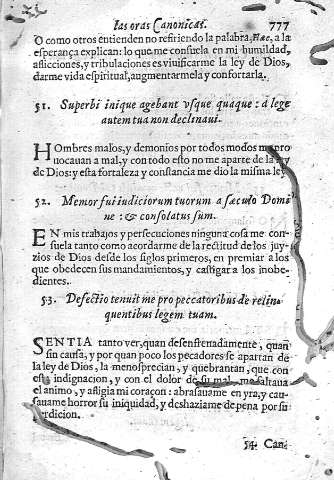 las oras Canonicas. 777
O como otros entienden no refiriendo la palabra Hæc, a la
esperança explican: lo que me consuela en mi humildad,
aflicciones, y tribulaciones es viuificarme la ley de Dios,
darme vida espiritual, augmentarmela y confortarla.
51. Superbi inique agebant vsque quaque: à lege
autem tua non declinaui.
HOmbres malos, y demonios por todos modos me pro
uocauan a mal, y con todo esto no me aparte de la ley
de Dios: y esta fortaleza y constancia me dio la misma ley
52. Memor fui iudiciorum tuorum a sæculo Domi
ne: & consolatus sum.
EN mis trabajos y persecuciones ninguna cosa me con-
suela tanto como acordarme de la rectitud de los juy-
zios de Dios desde los siglos primeros, en premiar a los
que obedecen sus mandamientos, y castigar a los inobe-
dientes.
53. Defectio tenuit me pro peccatoribus de relin
quentibus legem tuam.
SENTIA tanto ver, quan desenfrenadamente, quan
sin causa, y por quan poco los pecadores se apartan de
la ley de Dios, la menosprecian, y quebrantan, que con
esta indignacion, y con el dolor de su mal, me faltaua
el animo, y afligia mi coraçon: abrasauame en yra, y cau-
sauame horror su iniquidad, y deshaziame de pena por su
perdicion.
54. Can-